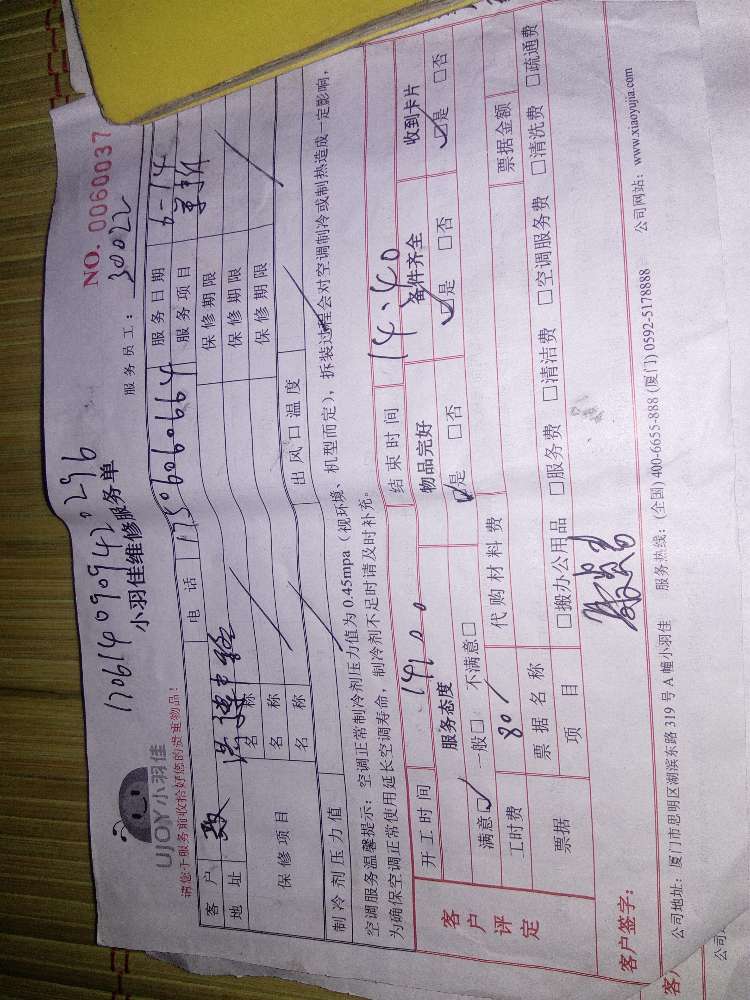 170614090942.296
UJOY小羽佳
小羽佳维修服务单
NO. 0060037
请您于服务前收拾好您的贵重物品!
服务员工: 30022
客户 电话 17506060664 服务日期 6-14
地址 服务项目
保修项目 名称 保修期限
名称 保修期限
名称 保修期限
制冷剂压力值 出风口温度
空调服务温馨提示:空调正常制冷剂压力值为 0.45mpa(视环境、机型而定),拆装过程会对空调制冷或制热造成一定影响,
为确保空调正常使用延长空调寿命,制冷剂不足时请及时补充。
开工时间 结束时间 14:40
客户评定 服务态度 物品完好 备件齐全 收到卡片
满意☑ 一般□ 不满意□ ☑是 □否 ☑是 □否 ☑是 □否
工时费 80 代购材料费
票据 票据名称 票据金额
项目 □搬办公用品 □服务费 □清洁费 □空调服务费 □清洗费 □疏通费
客户签字:
公司地址:厦门市思明区湖滨东路 319 号 A 幢小羽佳 服务热线:(全国) 400-6655-888 (厦门) 0592-5178888 公司网站:www.xiaoyujia.com